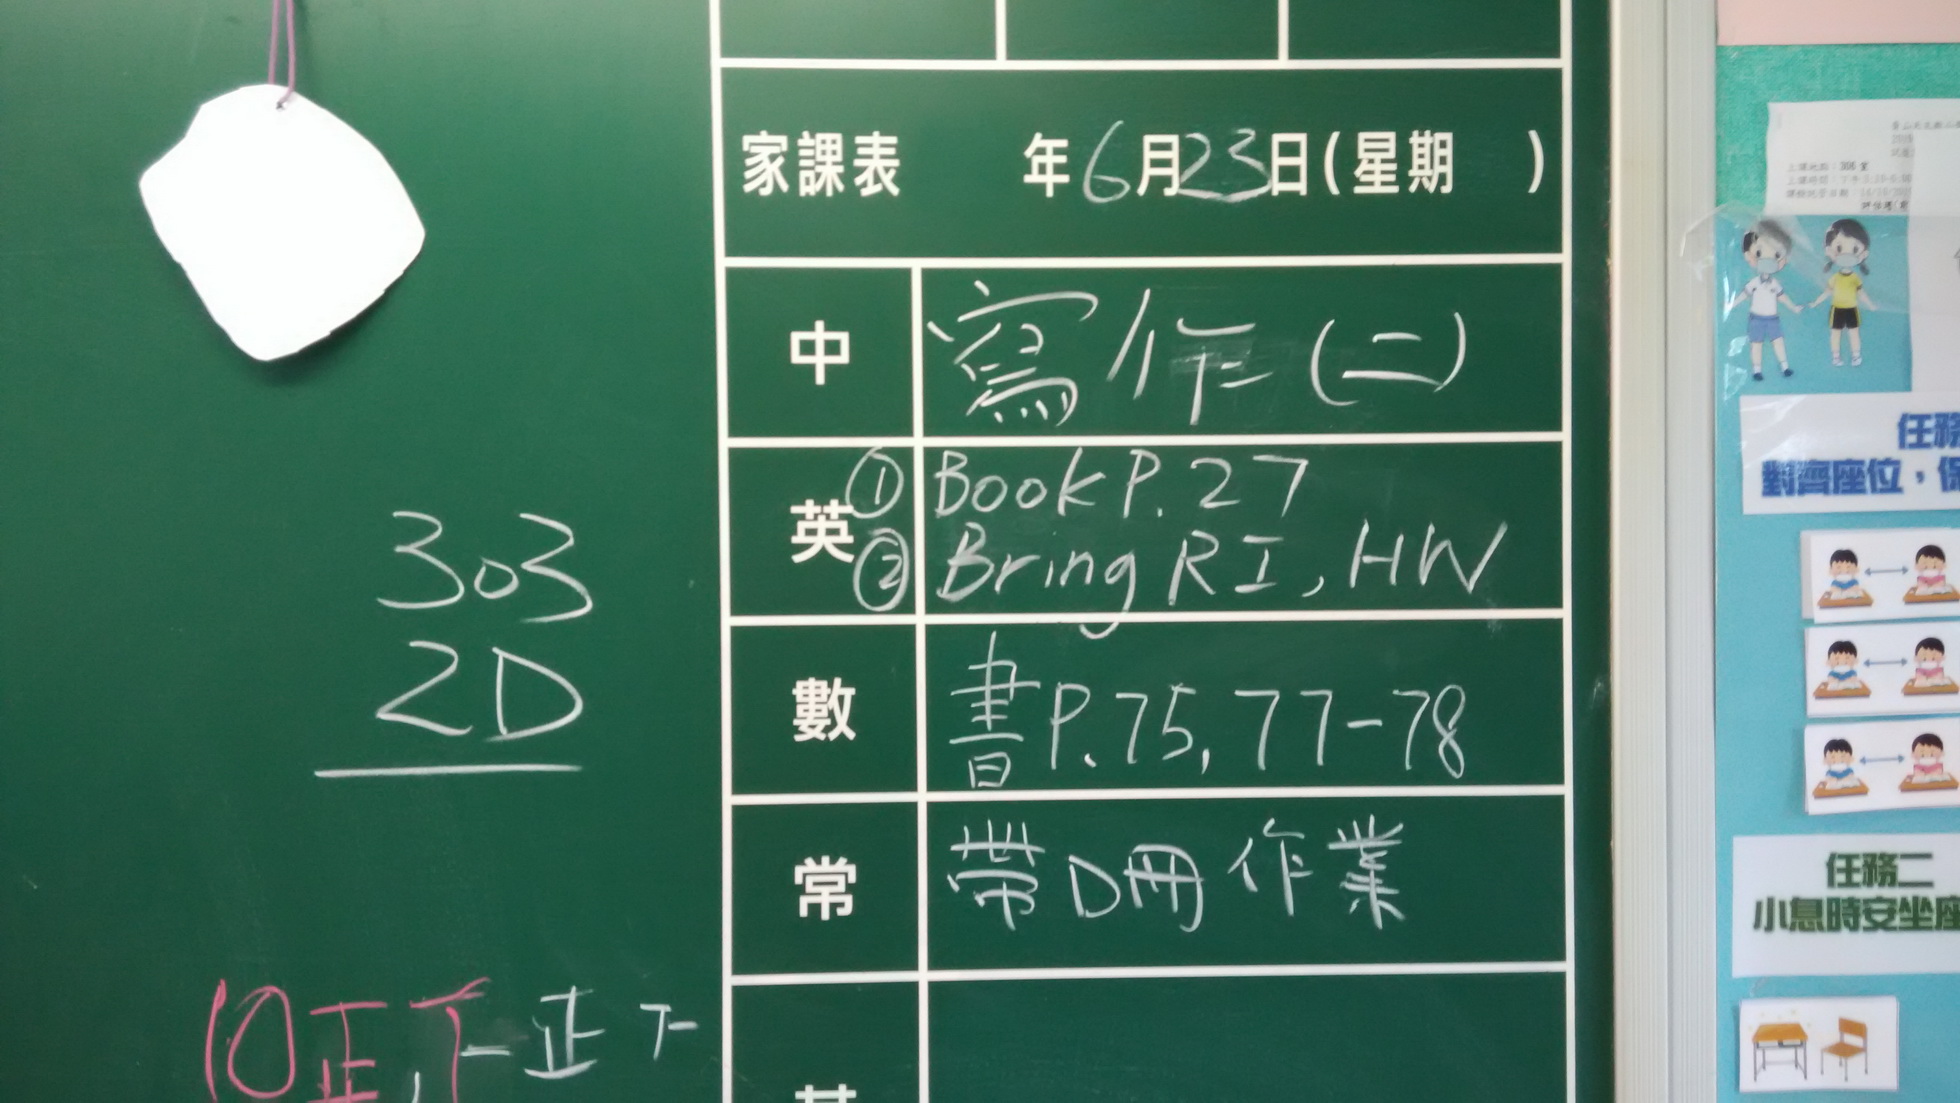 家課表 年6月23日(星期 )
中 寫作(二)
英 ①Book P.27
②Bring RI, HW
數 書P.75, 77-78
常 帶D冊作業
303
2D
10正,下一正下
306室
任務
對齊座位，保
任務二
小息時安坐座